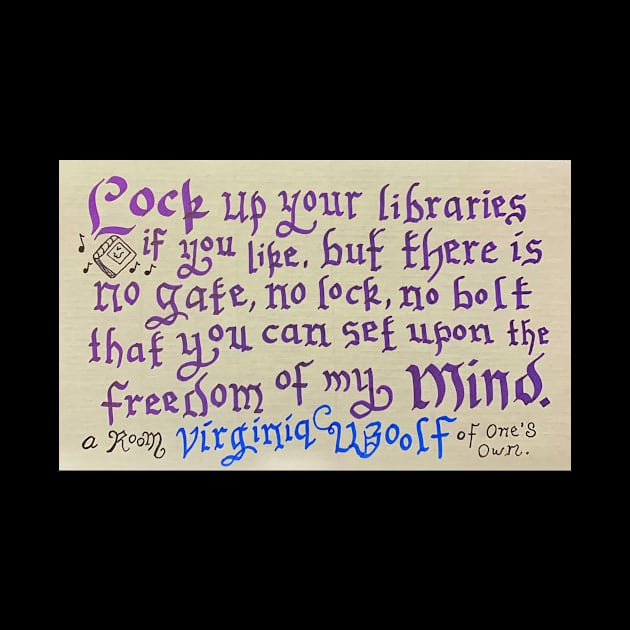 Lock up your libraries
if you like, but there is
no gate, no lock, no bolt
that you can set upon the
freedom of my Mind.
a Room Virginia Woolf of One's
Own.